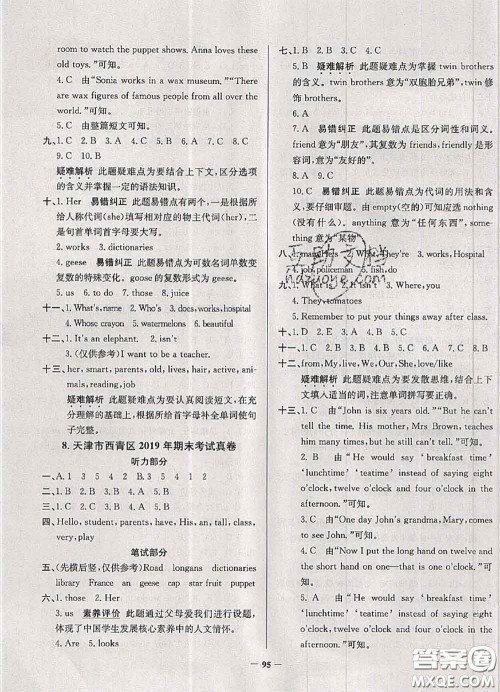 room to watch the puppet shows. Anna loves these
old toys.”可知。
4. C　由“Sonia works in a wax museum.”“There
are wax figures of famous people from all over the
world.”可知。
5. C　由整篇短文可知。
九、1. C　2. A　3. B　4. A　5. B　6. A　7. C　8. B
9. C　10. B
疑难解析　此题疑难点为要结合上下文,区分选项
的含义并掌握一定的语法知识。
十、1. Her　易错纠正　此题易错点有两个,一是根据所
给人称代词(she)填写相对应的物主代词(her),
二是句首单词首字母要大写。
2. works　3. dictionaries
4. geese　易错纠正　此题易错点为可数名词单数变
复数的特殊变化。goose的复数形式为geese。
5. us　6. to do　7. those　8. juice
十一、1. What's, name　2. Who's, does, works, hospital
4. Whose crayon　5. watermelons　6. beautiful
十二、1. It's an elephant.　2. isn't
3. (仅供参考)I want to be a teacher.
十三、her, smart, parents, old, job, active, animals,
reading, job
疑难解析　此题疑难点为要认真阅读短文,在充
分理解的基础上,根据首字母补全单词使句
子完整。
8. 天津市西青区 2019 年期末考试真卷
听力部分
一、A. 1　3　5　4　2　B. 4　2　5　1　3
二、1. A　2. B　3. A　4. A　5. B
三、1. C　2. B　3. A　4. C　5. B
四、Hello, student, parents, have, His, an, tall, class,
very, play
笔试部分
五、(先横后竖,仅供参考)Road　longans　dictionaries
library　France　an　geese　cap　star fruit　puppet
六、1. those　2. her
3. us　素养评价　此题通过父母爱我们进行设题,
体现了中国学生发展核心素养中的人文情怀。
4. Are　5. looks
七、1. B　2. B　3. A　4. C
5. B　疑难解析　此题疑难点为掌握 twin brothers
的含义。twin brothers 意为“双胞胎兄弟”,twin 修
饰 brothers。
6. A
7. A　易错纠正　此题易错点是区分词性和词义。
friend 意为“朋友”,其复数为 friends, friendly 是形容
词,意为“友好的”。
8. C　易错纠正　此题易错点为代词的用法和含义,
要仔细审题。由 empty(空的)可知应填 nothing
(没有什么)。anything 意为“任何东西”,some-
thing 意为“某物”。
2. What, They're　3. works, hospital
4. job, policeman　6. fish, do
九、1. What is　2. It isn't　3. Where, you
4. They, tomatoes
十、1. Remember to put your things away after class.
十一、1. C　2. B　3. D　4. A　5. E
十二、from, My, live, We, Our, She, love/like
疑难解析　此题疑难点为要发散思维,结合上下
文填入适当的词,注意单词拼写要正确。
十三、1. C　由“John is six years old.”“But he can't
tell the time. His mother teaches him
many times, but he still can't tell.”可知。
2. B　由“He would say ‘breakfast time’
‘lunchtime’ ‘teatime’ instead of saying eight
o'clock, twelve o'clock and five o'clock.”
可知。
3. C　由“One day John's grandma, Mary,
comes to see John.”可知。
4. C　由“Now I put the long hand on twelve
and the short hand on one.”“It is one o'clock.”
可知。
5. B　由“He would say ‘breakfast time’
‘lunchtime’ ‘teatime’ instead of saying eight
o'clock, twelve o'clock and five o'clock.”可知。
— 95 —
答案圈
MXQE.COM